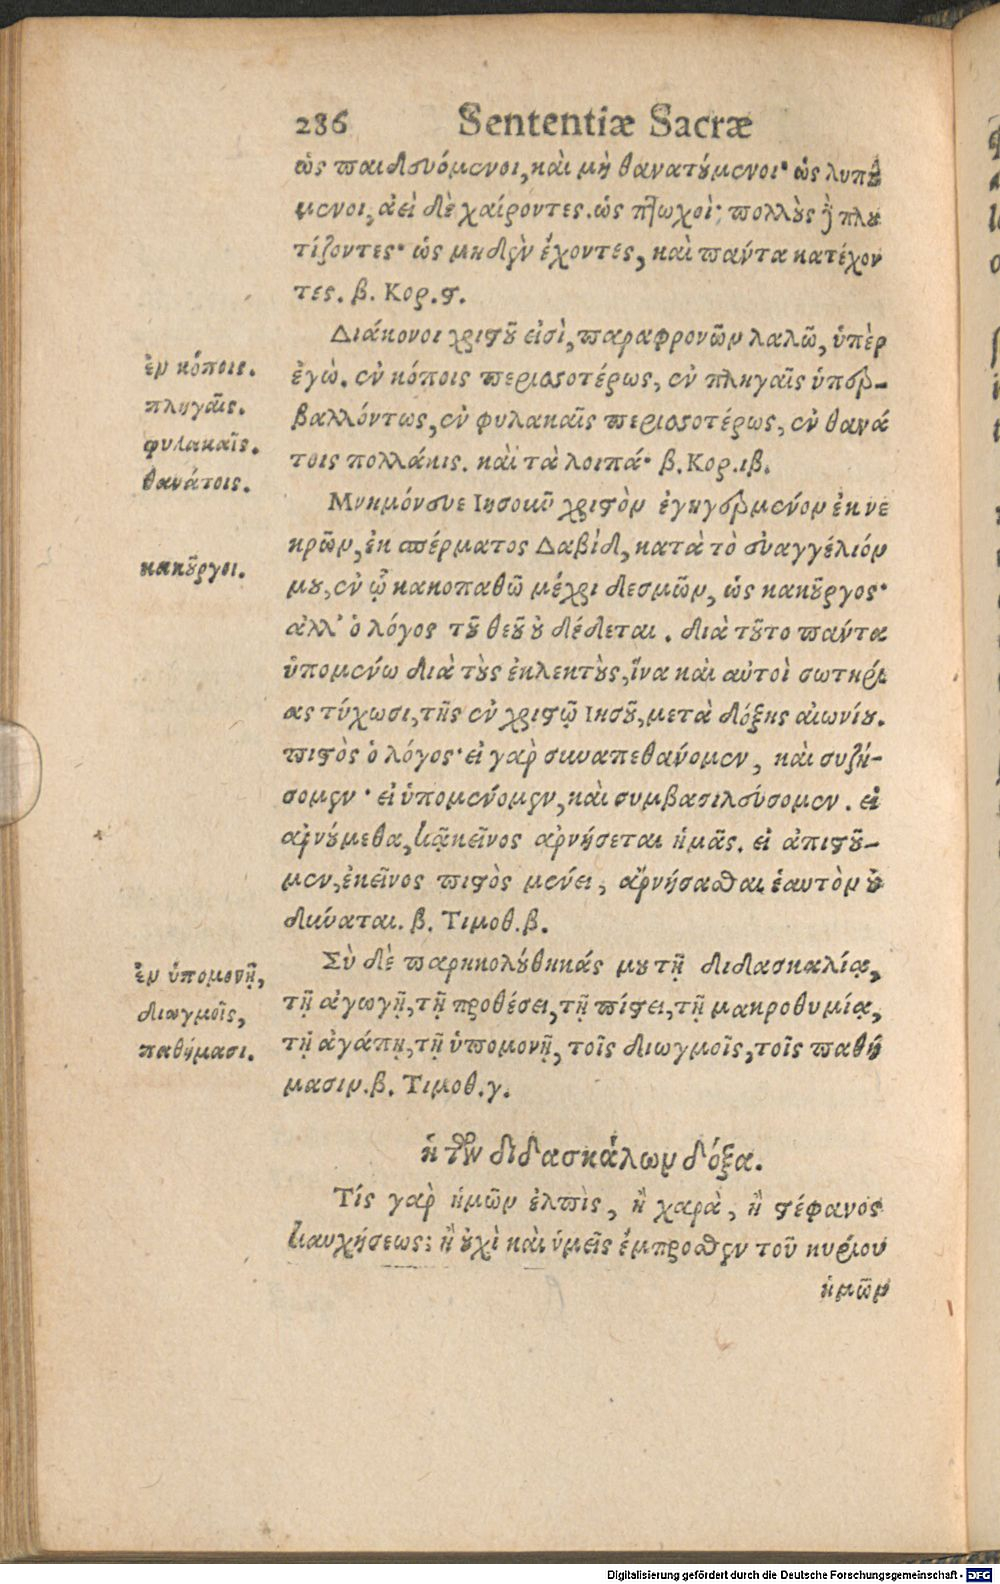 286 Sententiæ Sacræ
ὡς παιδευόμενοι, καὶ μὴ θανατούμενοι· ὡς λυπού
μενοι, ἀεὶ δὲ χαίροντες. ὡς πτωχοὶ· πολλοὺς δὲ πλου
τίζοντες· ὡς μηδὲν ἔχοντες, καὶ πάντα κατέχον
τες. β. Κορ. ϛ.
Διάκονοι χριστοῦ εἰσὶ, παραφρονῶν λαλῶ, ὑπὲρ
ἐν κόποις.
ἐγὼ. ἐν κόποις περισσοτέρως, ἐν πληγαῖς ὑπερ-
πληγαῖς.
βαλλόντως, ἐν φυλακαῖς περισσοτέρως, ἐν θανά
φυλακαῖς.
τοις πολλάκις. καὶ τὰ λοιπά· β. Κορ. ιβ.
θανάτοις.
Μνημόνευε Ιησοῦν χριστὸν ἐγηγερμένον ἐκ νε
κρῶν, ἐκ σπέρματος Δαβὶδ, κατὰ τὸ εὐαγγέλιόν
κακοῦργοι.
μου, ἐν ᾧ κακοπαθῶ μέχρι δεσμῶν, ὡς κακοῦργος·
ἀλλ' ὁ λόγος τοῦ θεοῦ οὐ δέδεται. διὰ τοῦτο πάντα
ὑπομένω διὰ τοὺς ἐκλεκτοὺς, ἵνα καὶ αὐτοὶ σωτηρί
ας τύχωσι, τῆς ἐν χριστῷ Ιησοῦ, μετὰ δόξης αἰωνίου.
πιστὸς ὁ λόγος· εἰ γὰρ συναπεθάνομεν, καὶ συζή-
σομεν· εἰ ὑπομένομεν, καὶ συμβασιλεύσομεν. εἰ
ἀρνούμεθα, κᾀκεῖνος ἀρνήσεται ἡμᾶς. εἰ ἀπιστοῦ-
μεν, ἐκεῖνος πιστὸς μένει, ἀρνήσασθαι ἑαυτὸν οὐ
δύναται. β. Τιμοθ. β.
Σὺ δὲ παρηκολούθηκάς μου τῇ διδασκαλίᾳ,
ἐν ὑπομονῇ,
τῇ ἀγωγῇ, τῇ προθέσει, τῇ πίστει, τῇ μακροθυμίᾳ,
διωγμοῖς,
τῇ ἀγάπῃ, τῇ ὑπομονῇ, τοῖς διωγμοῖς, τοῖς παθή
παθήμασι.
μασιν. β. Τιμοθ. γ.
ἡ τῶν διδασκάλων δόξα.
Τίς γὰρ ἡμῶν ἐλπὶς, ἢ χαρὰ, ἢ στέφανος
καυχήσεως; ἢ οὐχὶ καὶ ὑμεῖς ἔμπροσθεν τοῦ κυρίου
ἡμῶν
Digitalisierung gefördert durch die Deutsche Forschungsgemeinschaft - DFG